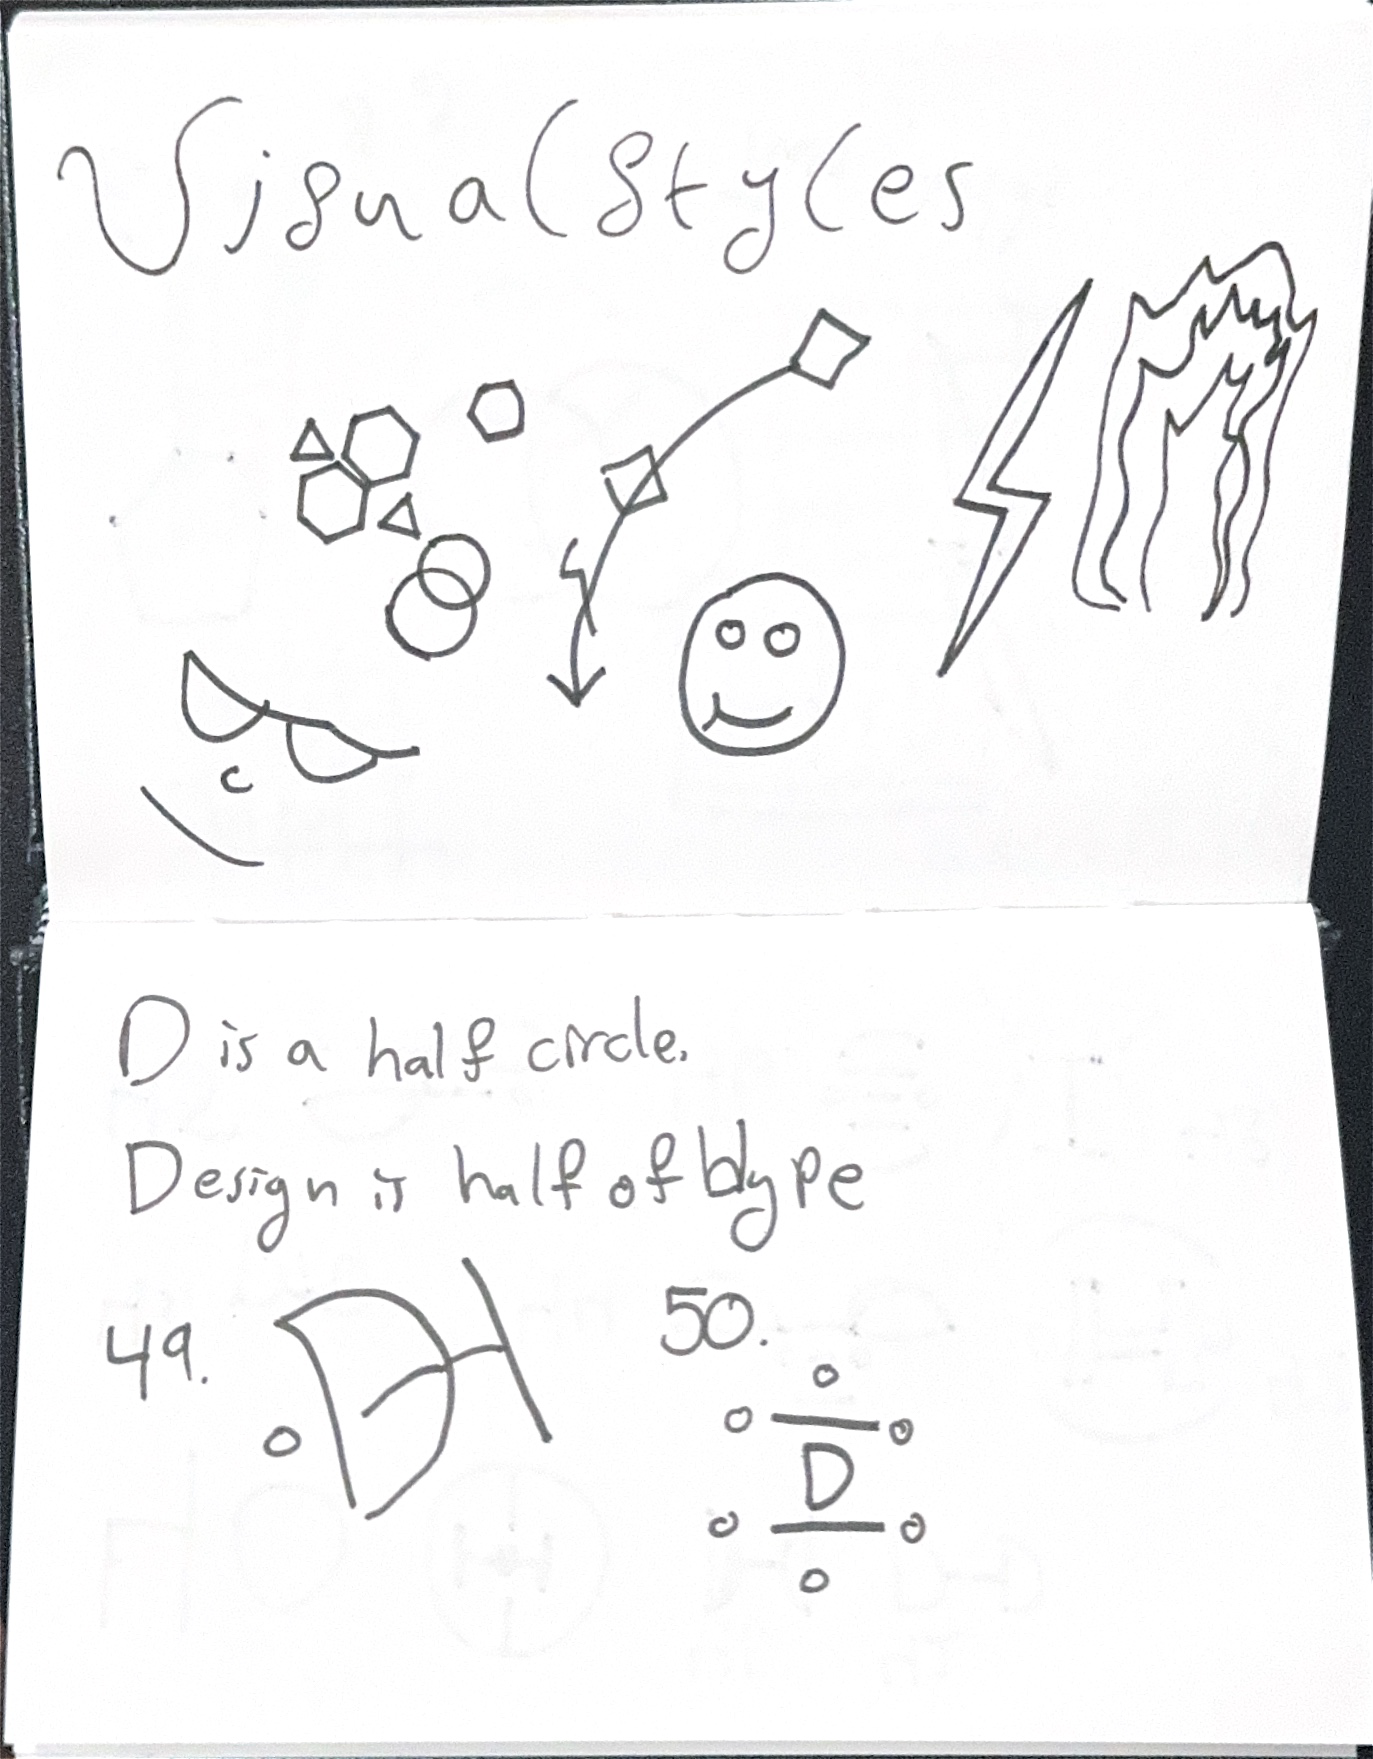 Visual Styles
D is a half circle.
Design is half of Hype
49. DH
50.
D